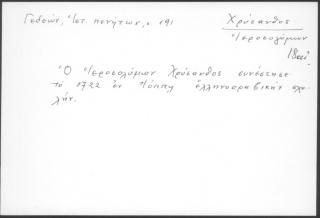 Γεδεών, Ἱστ. πενήτων, σ 191
Χρύσανθος
Ἱεροσολύμων
Ὁ Ἱεροσολύμων Χρύσανθος συνέστησε
τὸ 1722 ἐν Ἰόππῃ ἑλληνοαραβικὴν σχο-
λήν.